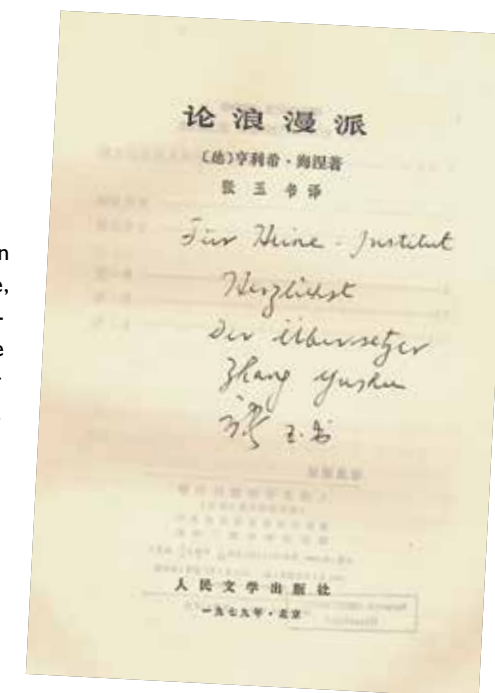 论浪漫派
〔德〕亨利希·海涅著
张玉书译
Für Heine-Institut
Herzlichst
Der Übersetzer
Zhang Yushu
张玉书
人民文学出版社
一九七九年·北京